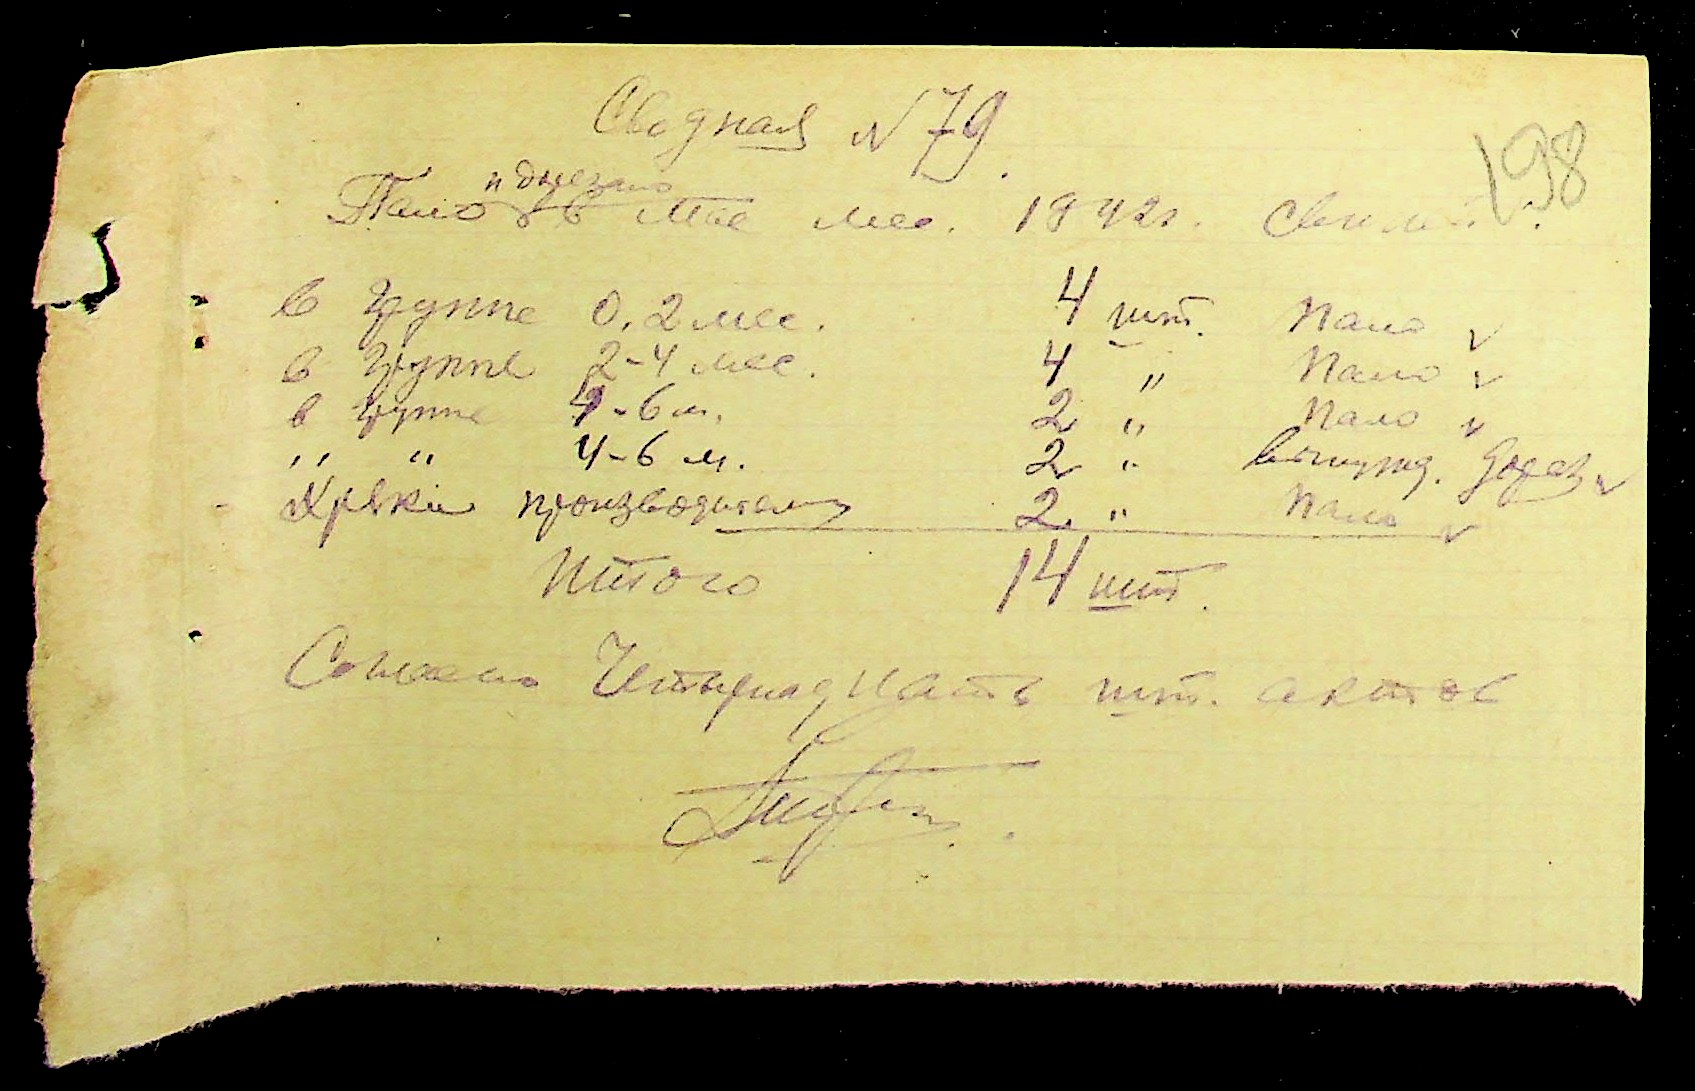 Сводная N 79.
198
и дорезано
Пало в Мае мес. 1942г. свиней.
в группе 0.2 мес. 4 шт. Пало v
в группе 2-4 мес. 4 " Пало v
в группе 4-6 м. 2 " Пало v
" " 4-6 м. 2 " вынужд. дорез v
Хряки производители 2 " Пало v
Итого 14 шт.
Согласно Четырнадцать шт. актов